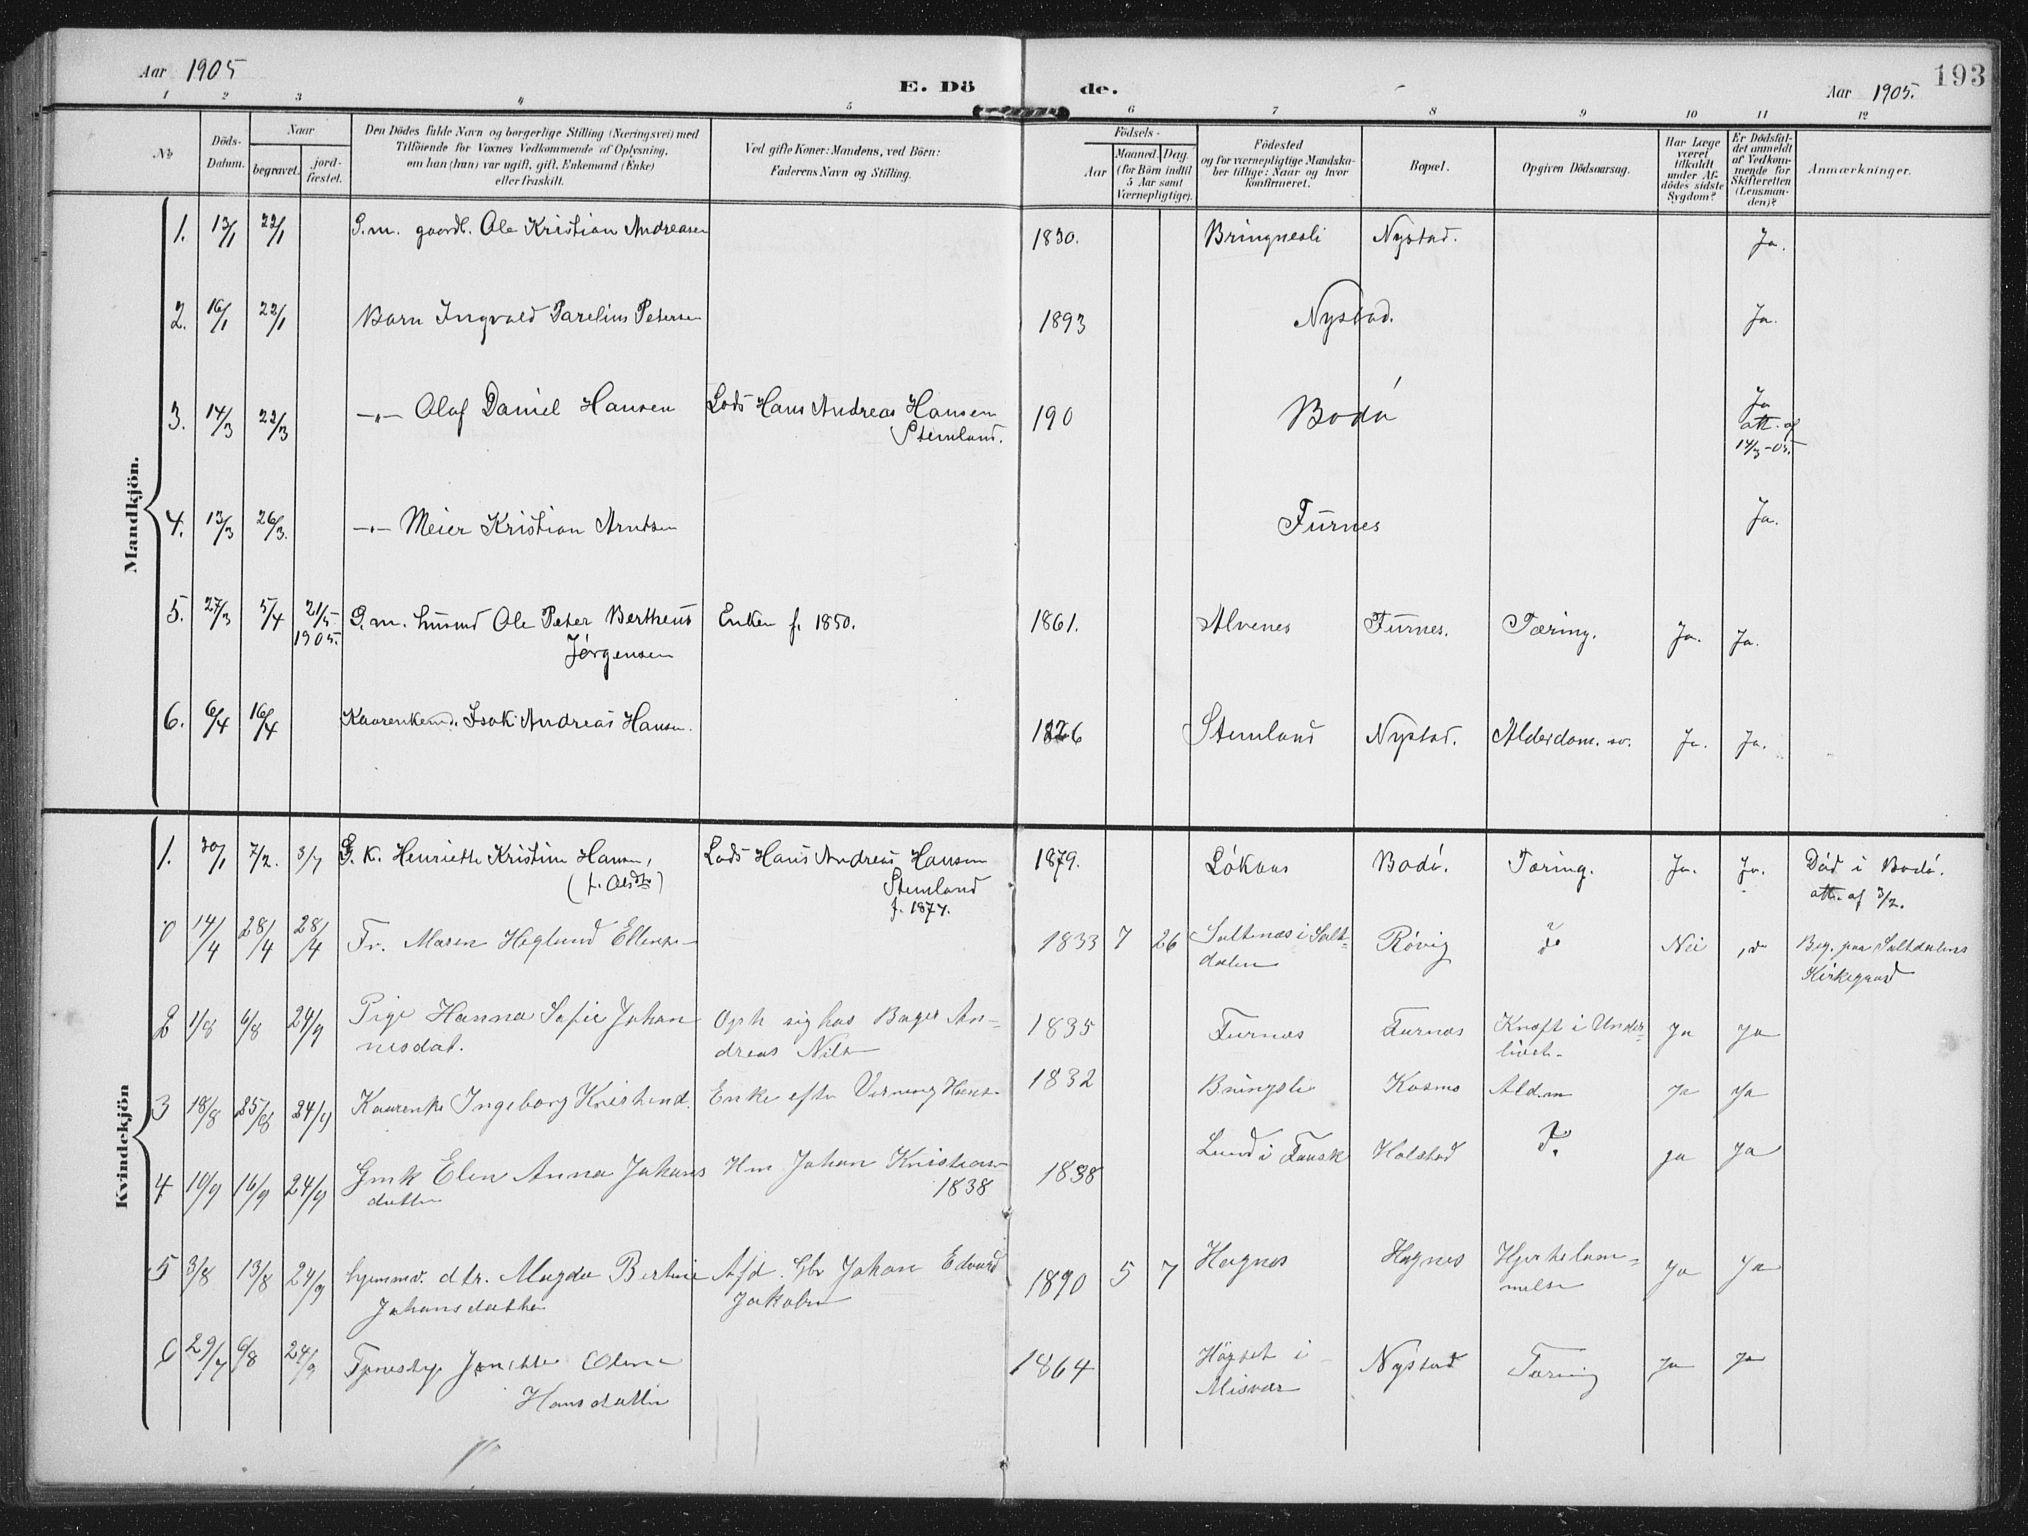 Aar 1905
E. Dö
de.
Aar 1905.
193
1 2 3 4 5 6 7 8 9 10 11 12
No
Döds-
Datum.
Naar
begravet.
jord-
fæstet.
Den Dödes fulde Navn og borgerlige Stilling (Næringsvei) med
Tilföiende for Voxnes Vedkommende af Oplysning,
om han (hun) var ugift, gift, Enkemand (Enke)
eller fraskilt.
Ved gifte Koner: Mandens, ved Börn:
Faderens Navn og Stilling.
Födsels-
Aar
Maaned. Dag.
(for Börn indtil
5 Aar samt
Værnepligtige).
Födested
og for værnepligtige Mandska-
ber tillige: Naar og hvor
konfirmeret.
Bopæl.
Opgiven Dödsaarsag.
Har Læge
været
tilkaldt
under Af-
dödes sidste
Sygdom?
Er Dödsfal-
det anmeldt
af Vedkom-
mende for
Skifteretten
(Lensman-
den)?
Anmærkninger.
Mandkjön.
1. 13/1 22/1 G.m. gaardb. Ole Kristian Andreasen 1830. Bringnesli Nystad. Ja.
2. 16/1 22/1 Barn Ingvald Parelius Petersen 1893 Nystad. Ja.
3. 14/3 22/3 -"- Olaf Daniel Hansen Lods Hans Andreas Hansen 190 Bodø Ja
Stemland. att. af
14/3-05.
4. 13/3 26/3. -"- Meier Kristian Arntsen Furnes Ja.
5. 27/3 5/4 21/5 G.m. husmd Ole Peter Bertheus Enken f. 1850. 1861. Alvenes Furnes. Tæring. Ja. Ja.
1905. Jørgensen
6. 6/4 16/4 Kaarenkemd. Isak Andreas Hansen. 1826 Stemland Nystad. Alderdom. sv. Ja. Ja.
Kvindekjön
1. 30/1 7/2. 3/7 G. k. Henriette Kristine Hansen, Lods Hans Andreas Hansen 1879. Løkaas Bodø. Tæring. Ja. Ja. Død i Bodø.
Stemland att. af 3/2.
f. 1874.
14/4 28/4 28/4 Fr. Maren Heglund Ellense 1833 7 26 Saltnæs i Salt- Røvig Nei Beg. paa Saltdalens
dalen Kirkegaard
2 1/8 6/8 24/9 Pige Hanna Sofie Johan Oph sig hos Bager An- 1835 Furnæs Furnæs Kræft i Under- Ja Ja
nesdat. dreas Nils livet.
3 18/8 25/8 24/9 Kaarenke Ingeborg Kristend. Enke efter 1832 Bringsli Kosmo Ald.m Ja Ja
4 10/9 16/9 24/9 Gmk Elen Anna Johans Hm Johan Kristian 1838 Lund i Fausk Holstad Ja Ja
datter 1838
5 3/8 13/8 24/9 hjemmv. dtr. Magda Bertine Afd. Gbr Johan Edvard 1890 5 7 Hagnes Hagnes Hjertelam- Ja Ja
Johansdatter Jakobs melse
6 29/7 6/8 24/9 Janette Oline 1864 i Nystad Tæring Ja Ja
Hansdatter Misvær